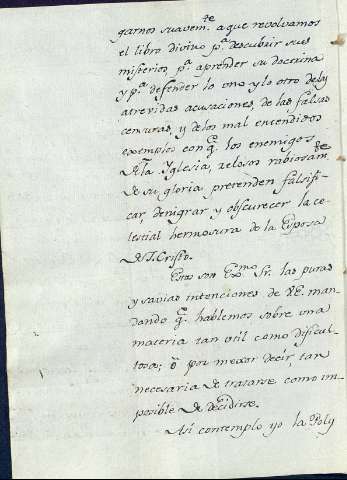 garnos suavem.te a que revolvamos
el libro divino p.a descubrir sus
misterios p.a aprender su doctrina
y p.a defender lo uno y lo otro de las
atrevidas acusaciones, de las falsas
censuras, y de los mal entendidos
exemplos con q. los enemigos
de la Yglesia, zelosos rabiosam.te
de su gloria pretenden falsifi-
car, denigrar y obscurecer la ce-
lestial hermosura de la Esposa
de J. Cristo.
Estas son Ex.mo Sr. las puras
y savias intenciones de V.E. man-
dando q. hablemos sobre una
materia tan util como dificul-
tosa; ó por mexor decir, tan
necesaria de tratarse como im-
posible de decidirse.
Asi contemplo yo la Poly